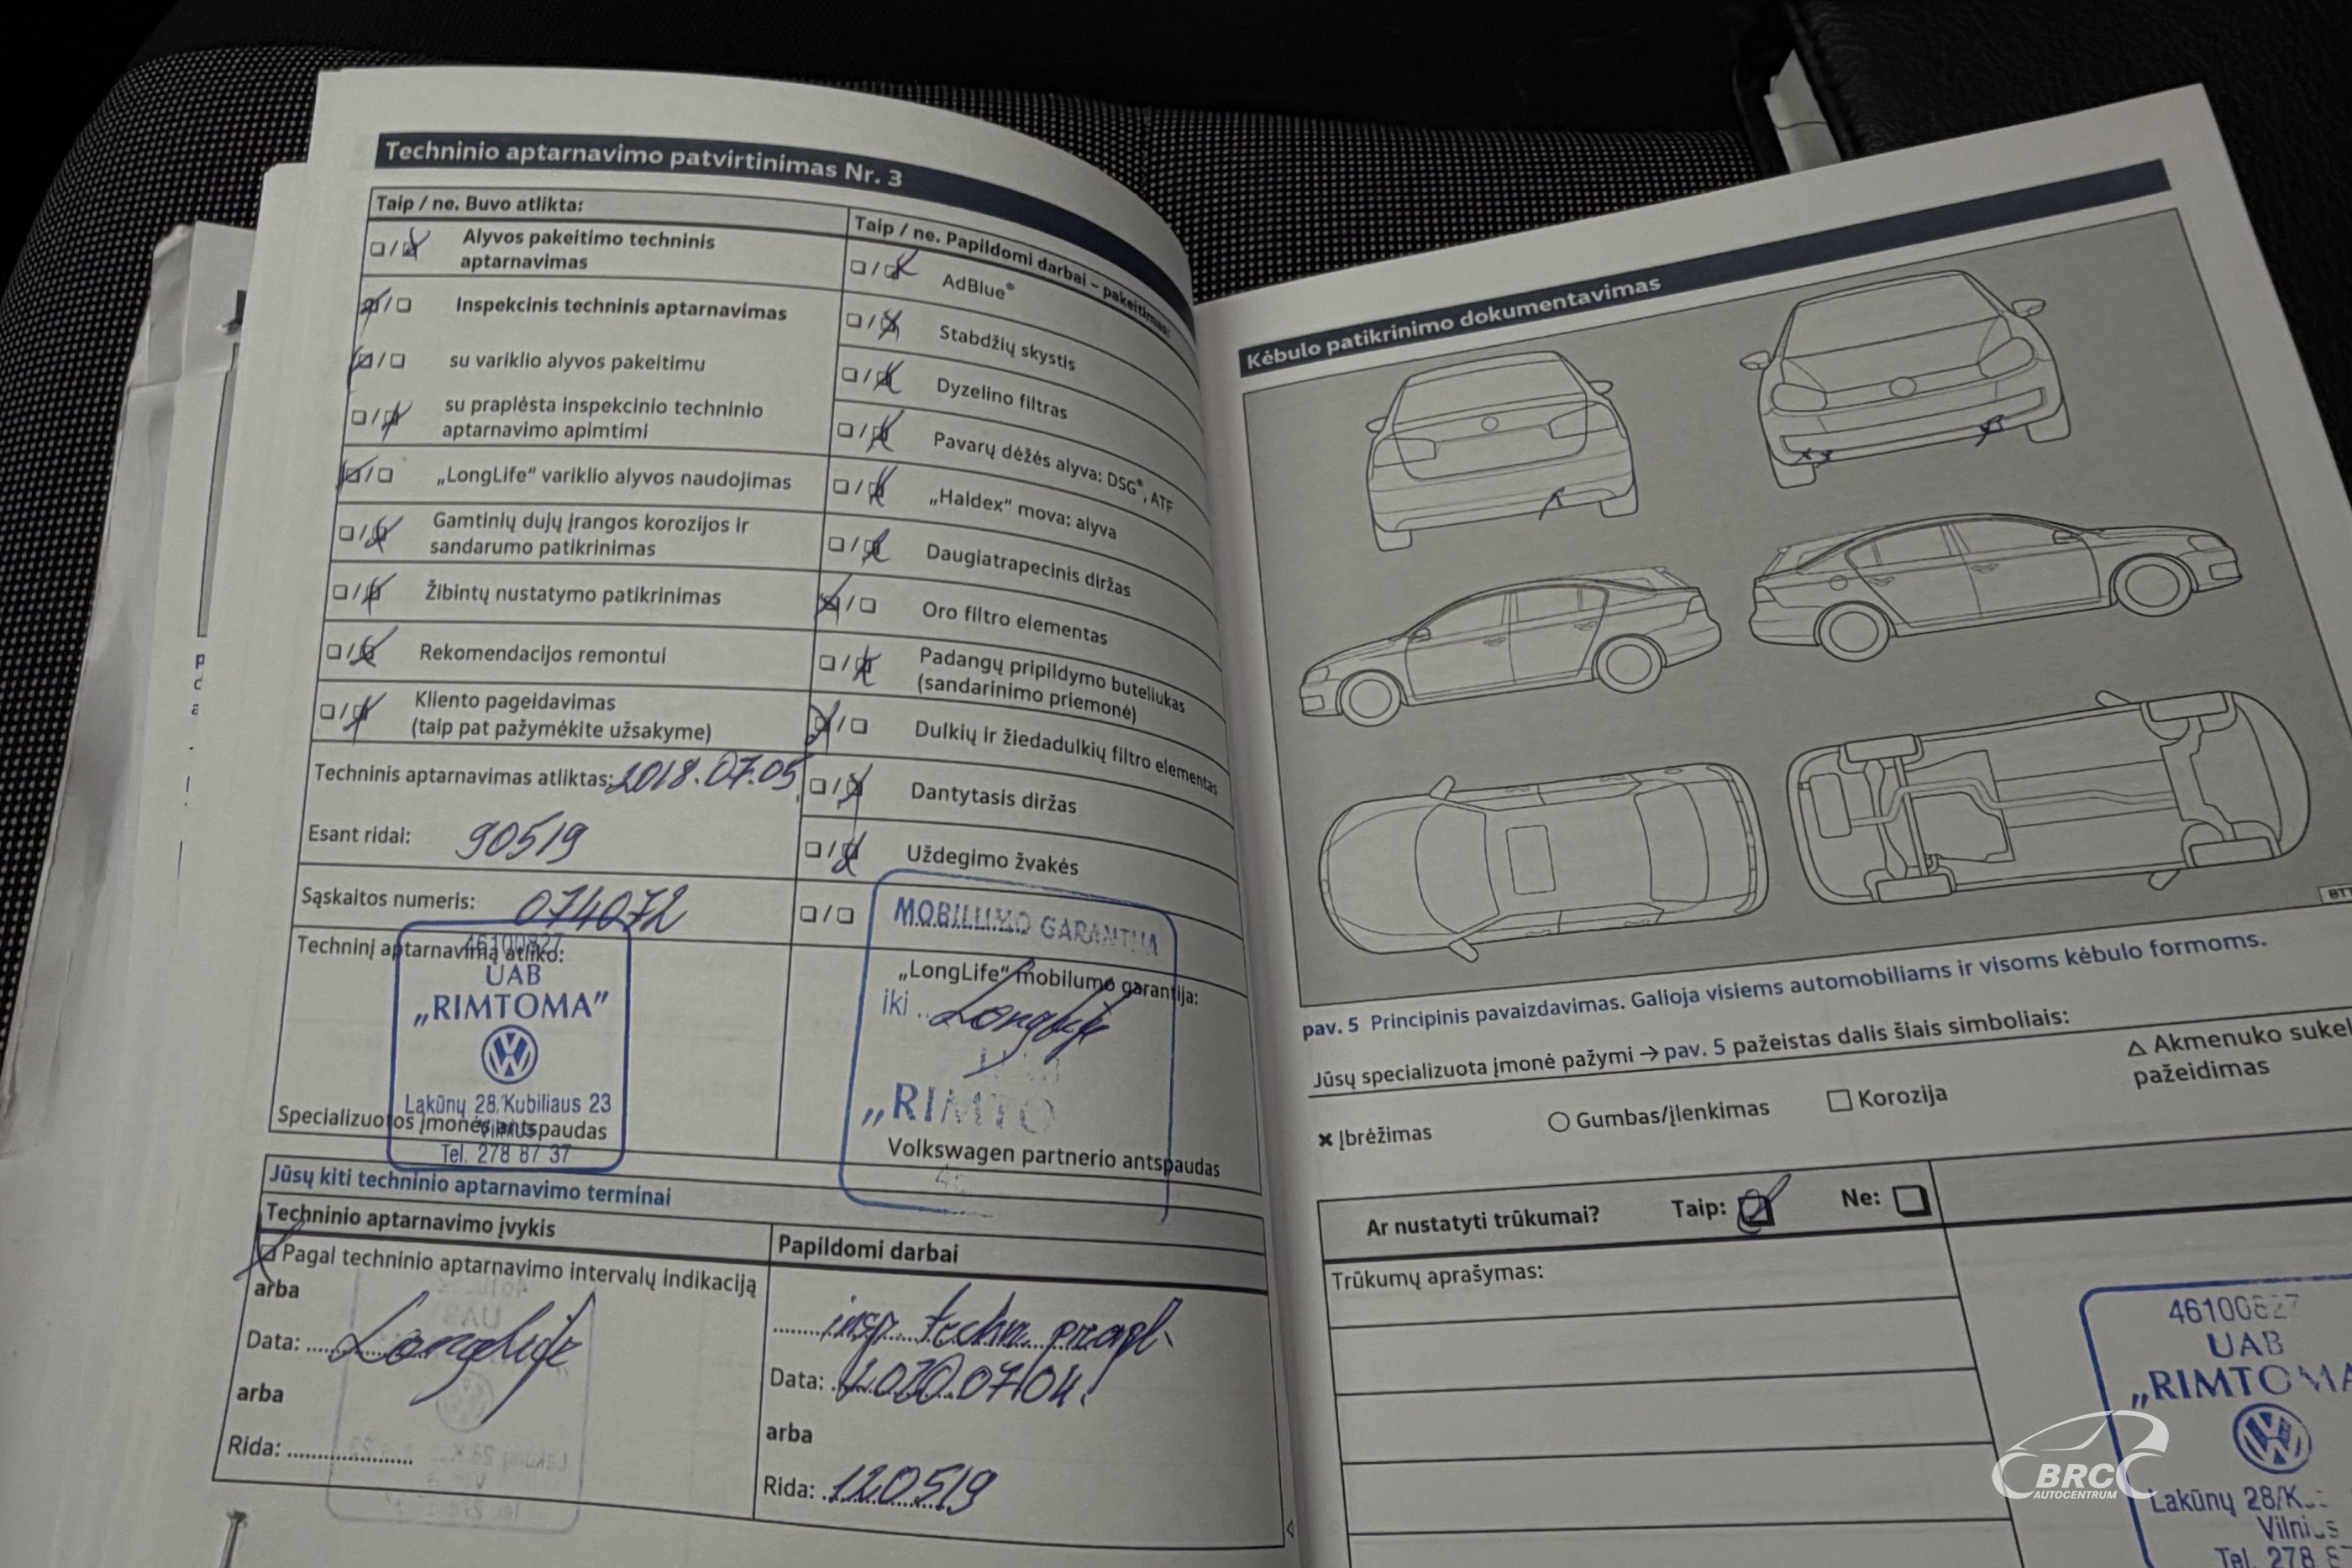 Techninio aptarnavimo patvirtinimas Nr. 3
Taip / ne. Buvo atlikta:
Alyvos pakeitimo techninis
aptarnavimas
Inspekcinis techninis aptarnavimas
su variklio alyvos pakeitimu
su praplėsta inspekcinio techninio
aptarnavimo apimtimi
„LongLife“ variklio alyvos naudojimas
Gamtinių dujų įrangos korozijos ir
sandarumo patikrinimas
Žibintų nustatymo patikrinimas
Rekomendacijos remontui
Kliento pageidavimas
(taip pat pažymėkite užsakyme)
Techninis aptarnavimas atliktas: 2018.07.05
Esant ridai: 90519
Sąskaitos numeris: 074072
Techninį aptarnavimą atliko:
46100827
UAB
„RIMTOMA”
Lakūnų 28/Kubiliaus 23
Vilnius
Tel. 278 87 37
Specializuotos įmonės antspaudas
Taip / ne. Papildomi darbai – pakeitimas:
AdBlue®
Stabdžių skystis
Dyzelino filtras
Pavarų dėžės alyva: DSG®, ATF
„Haldex“ mova: alyva
Daugiatrapecinis diržas
Oro filtro elementas
Padangų pripildymo buteliukas
(sandarinimo priemonė)
Dulkių ir žiedadulkių filtro elementas
Dantytasis diržas
Uždegimo žvakės
MOBILUMO GARANTIJA
„LongLife“ mobilumo garantija:
iki .. Longlife
„RIMTO
Volkswagen partnerio antspaudas
Jūsų kiti techninio aptarnavimo terminai
Techninio aptarnavimo įvykis
Pagal techninio aptarnavimo intervalų indikaciją
arba
Data: Longlife
arba
Rida:
Papildomi darbai
insp. techn. prapl.
Data: 2020.07.04.
arba
Rida: 120519
Kėbulo patikrinimo dokumentavimas
pav. 5 Principinis pavaizdavimas. Galioja visiems automobiliams ir visoms kėbulo formoms.
Jūsų specializuota įmonė pažymi → pav. 5 pažeistas dalis šiais simboliais:
× Įbrėžimas
○ Gumbas/įlenkimas
□ Korozija
△ Akmenuko sukel
pažeidimas
Ar nustatyti trūkumai? Taip: Ne:
Trūkumų aprašymas:
46100827
UAB
„RIMTOMA
Lakūnų 28/K
Vilnius
Tel. 278
BRC
AUTOCENTRUM